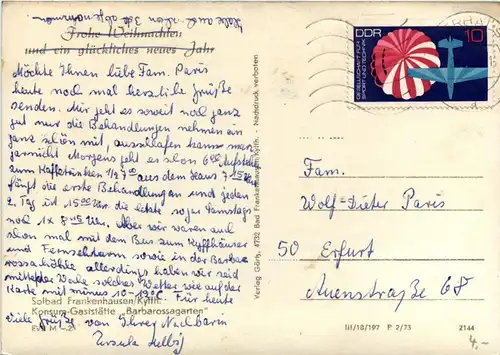 Habe auch schon 3 kg abgenommen
Frohe Weihnachten
und ein glückliches neues Jahr
Möchte Ihnen liebe Fam. Paris
heute noch mal herzliche Grüße
senden. Mir geht es soweit noch ganz
gut nur die Behandlungen nehmen ein
ganz schön mit, ausschlafen kann man
garnicht Morgens geht es schon 6 00 Aufstehn
zum Kaffetrinken 1/2 7 00 aus dem Haus 7 15
läuft die erste Behandlungen und jeden
2. Tag ist 15 00 Uhr die letzte sogar Samstags
noch 1 x 8 45 Uhr. Aber wir waren auch
schon mal mit dem Bus zum Kyffhäuser
und Fernsehturm sowie in der Barba
rossahöhle allerdings haben wir seid
mitte der Woche solches Wetter wie auf der
Karte mit minus 10-12°C. Für heute
viele Grüße von Ihrer Nachbarin
Ursula
Solbad Frankenhausen/Kyffh.
Konsum-Gaststätte „Barbarossagarten"
Verlag Görtz, 4732 Bad Frankenhausen/Kyffh. - Nachdruck verboten
DDR
10
GESELLSCHAFT FÜR
SPORT UND TECHNIK
Fam.
Wolf-Dieter Paris
50 Erfurt
Auenstraße 68
III/18/197 P 2/73 2144
4,-